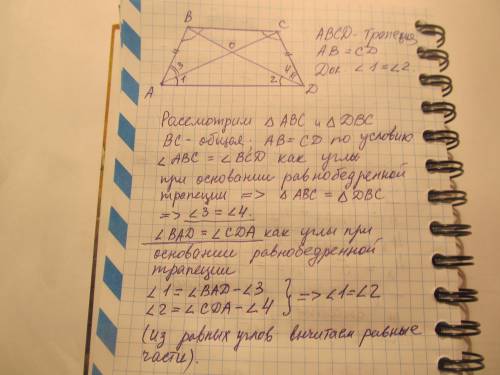 B C
O
3 1 2 4
A D
ABCD - трапеция
AB = CD
Док ∠1 = ∠2.
Рассмотрим △ABC и △DBC
BC - общая; AB = CD по условию
∠ABC = ∠BCD как углы
при основании равнобедренной
трапеции => △ABC = △DBC
=> ∠3 = ∠4.
∠BAD = ∠CDA как углы при
основании равнобедренной
трапеции
∠1 = ∠BAD - ∠3
∠2 = ∠CDA - ∠4 } => ∠1 = ∠2
(из равных углов вычитаем равные
части).